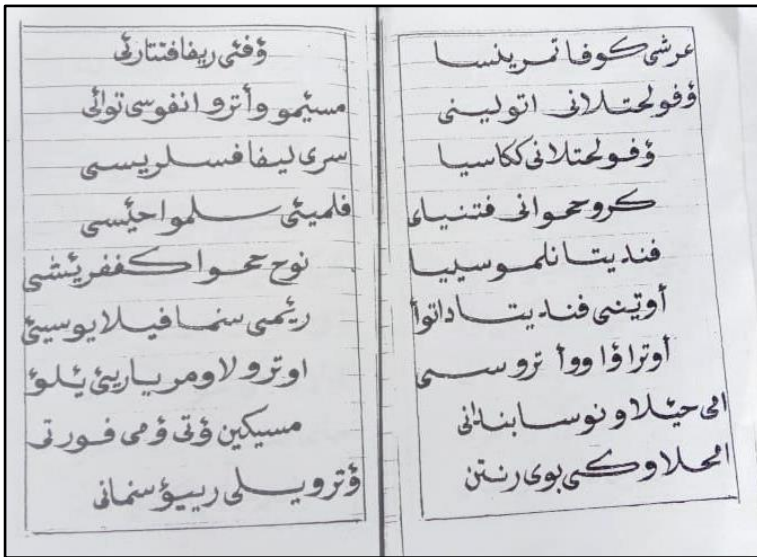 عرشي كوفا تمرينسا
ؤفولحتلانى اتولينى
ؤفولحتلانى ككاسيا
كروحوانى فتنياى
فنديتا نلموسييا
أوتينى فنديتا داتوأ
أوتراؤا ووأ تروسى
امى حيئلا ونوسا بندانى
المحلاوكى بوى رنتن
ؤفئى ريفافنتارئى
مسئيمو وأترو انفوسى توائى
سرى ليفا فسلريسى
فلميئى سلموا حيئسى
نوح حموا كففريئشى
ريئمى سنما فيلايوسيئ
اوترولا ومريارينئ يئلؤ
مسيكين ؤتى ؤمى فورتى
ؤترويلى رييؤ سنمانى